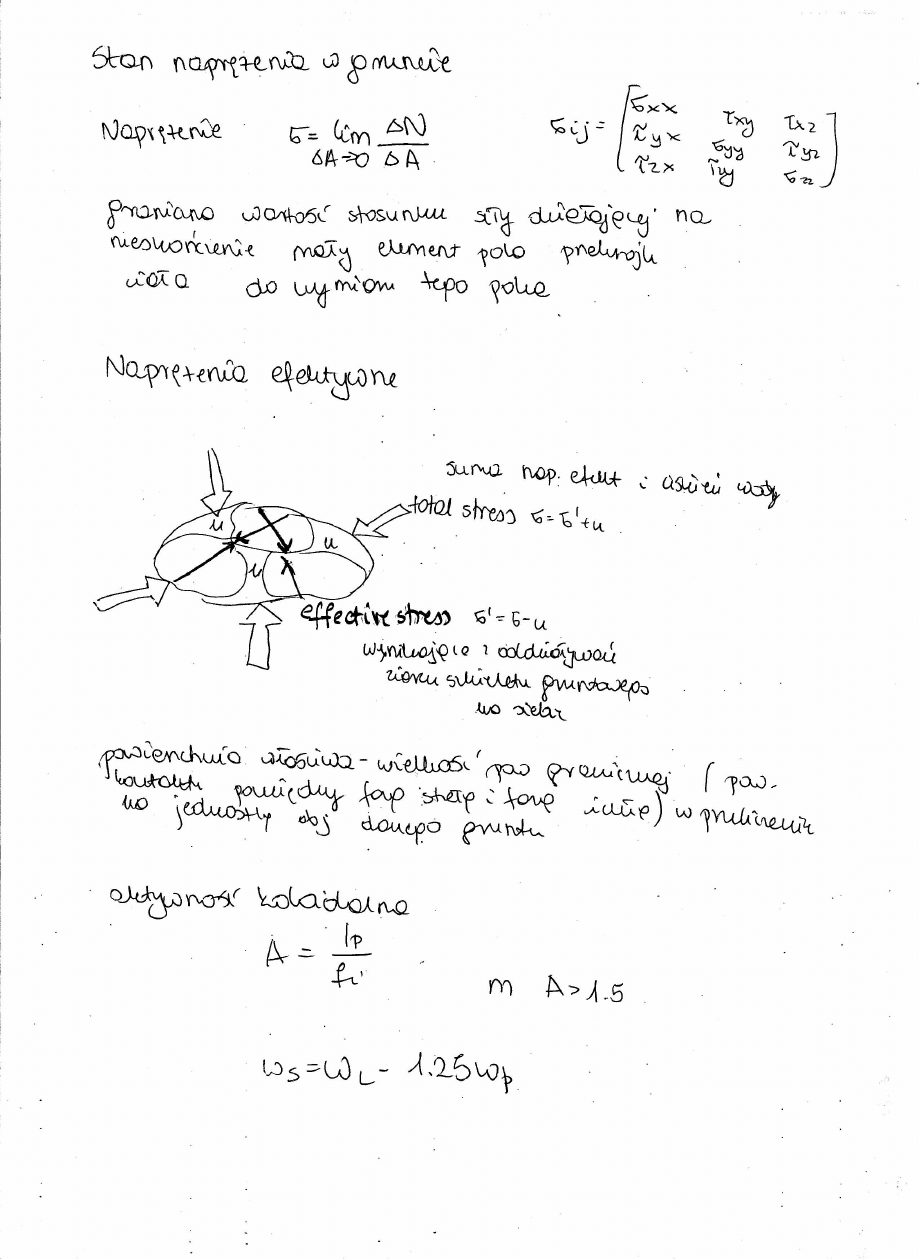 Stan naprężenia w gruncie
Naprężenie σ = lim ΔA→0 ΔN/ΔA
σij = [σxx τxy τxz
τyx σyy τyz
τzx τzy σzz]
graniano wartość stosunku siły działającej na
nieskończenie mały element pola przekroju
ciała do wymiaru tego pola
Naprężenia efektywne
suma nap. efekt i ciśnień wody
total stress σ = σ' + u
u
u
u
effective stress σ' = σ - u
wynikające z oddziaływań
ziaren szkieletu gruntowego
na siebie
powierzchnia właściwa - wielkość pow granicznej (pow.
kontaktu pomiędzy fazą stałą i fazą ciekłą) w przeliczeniu
na jednostkę obj danego gruntu
aktywność koloidalna
A = Ip/fi
m A > 1.5
ws = wL - 1.25wp